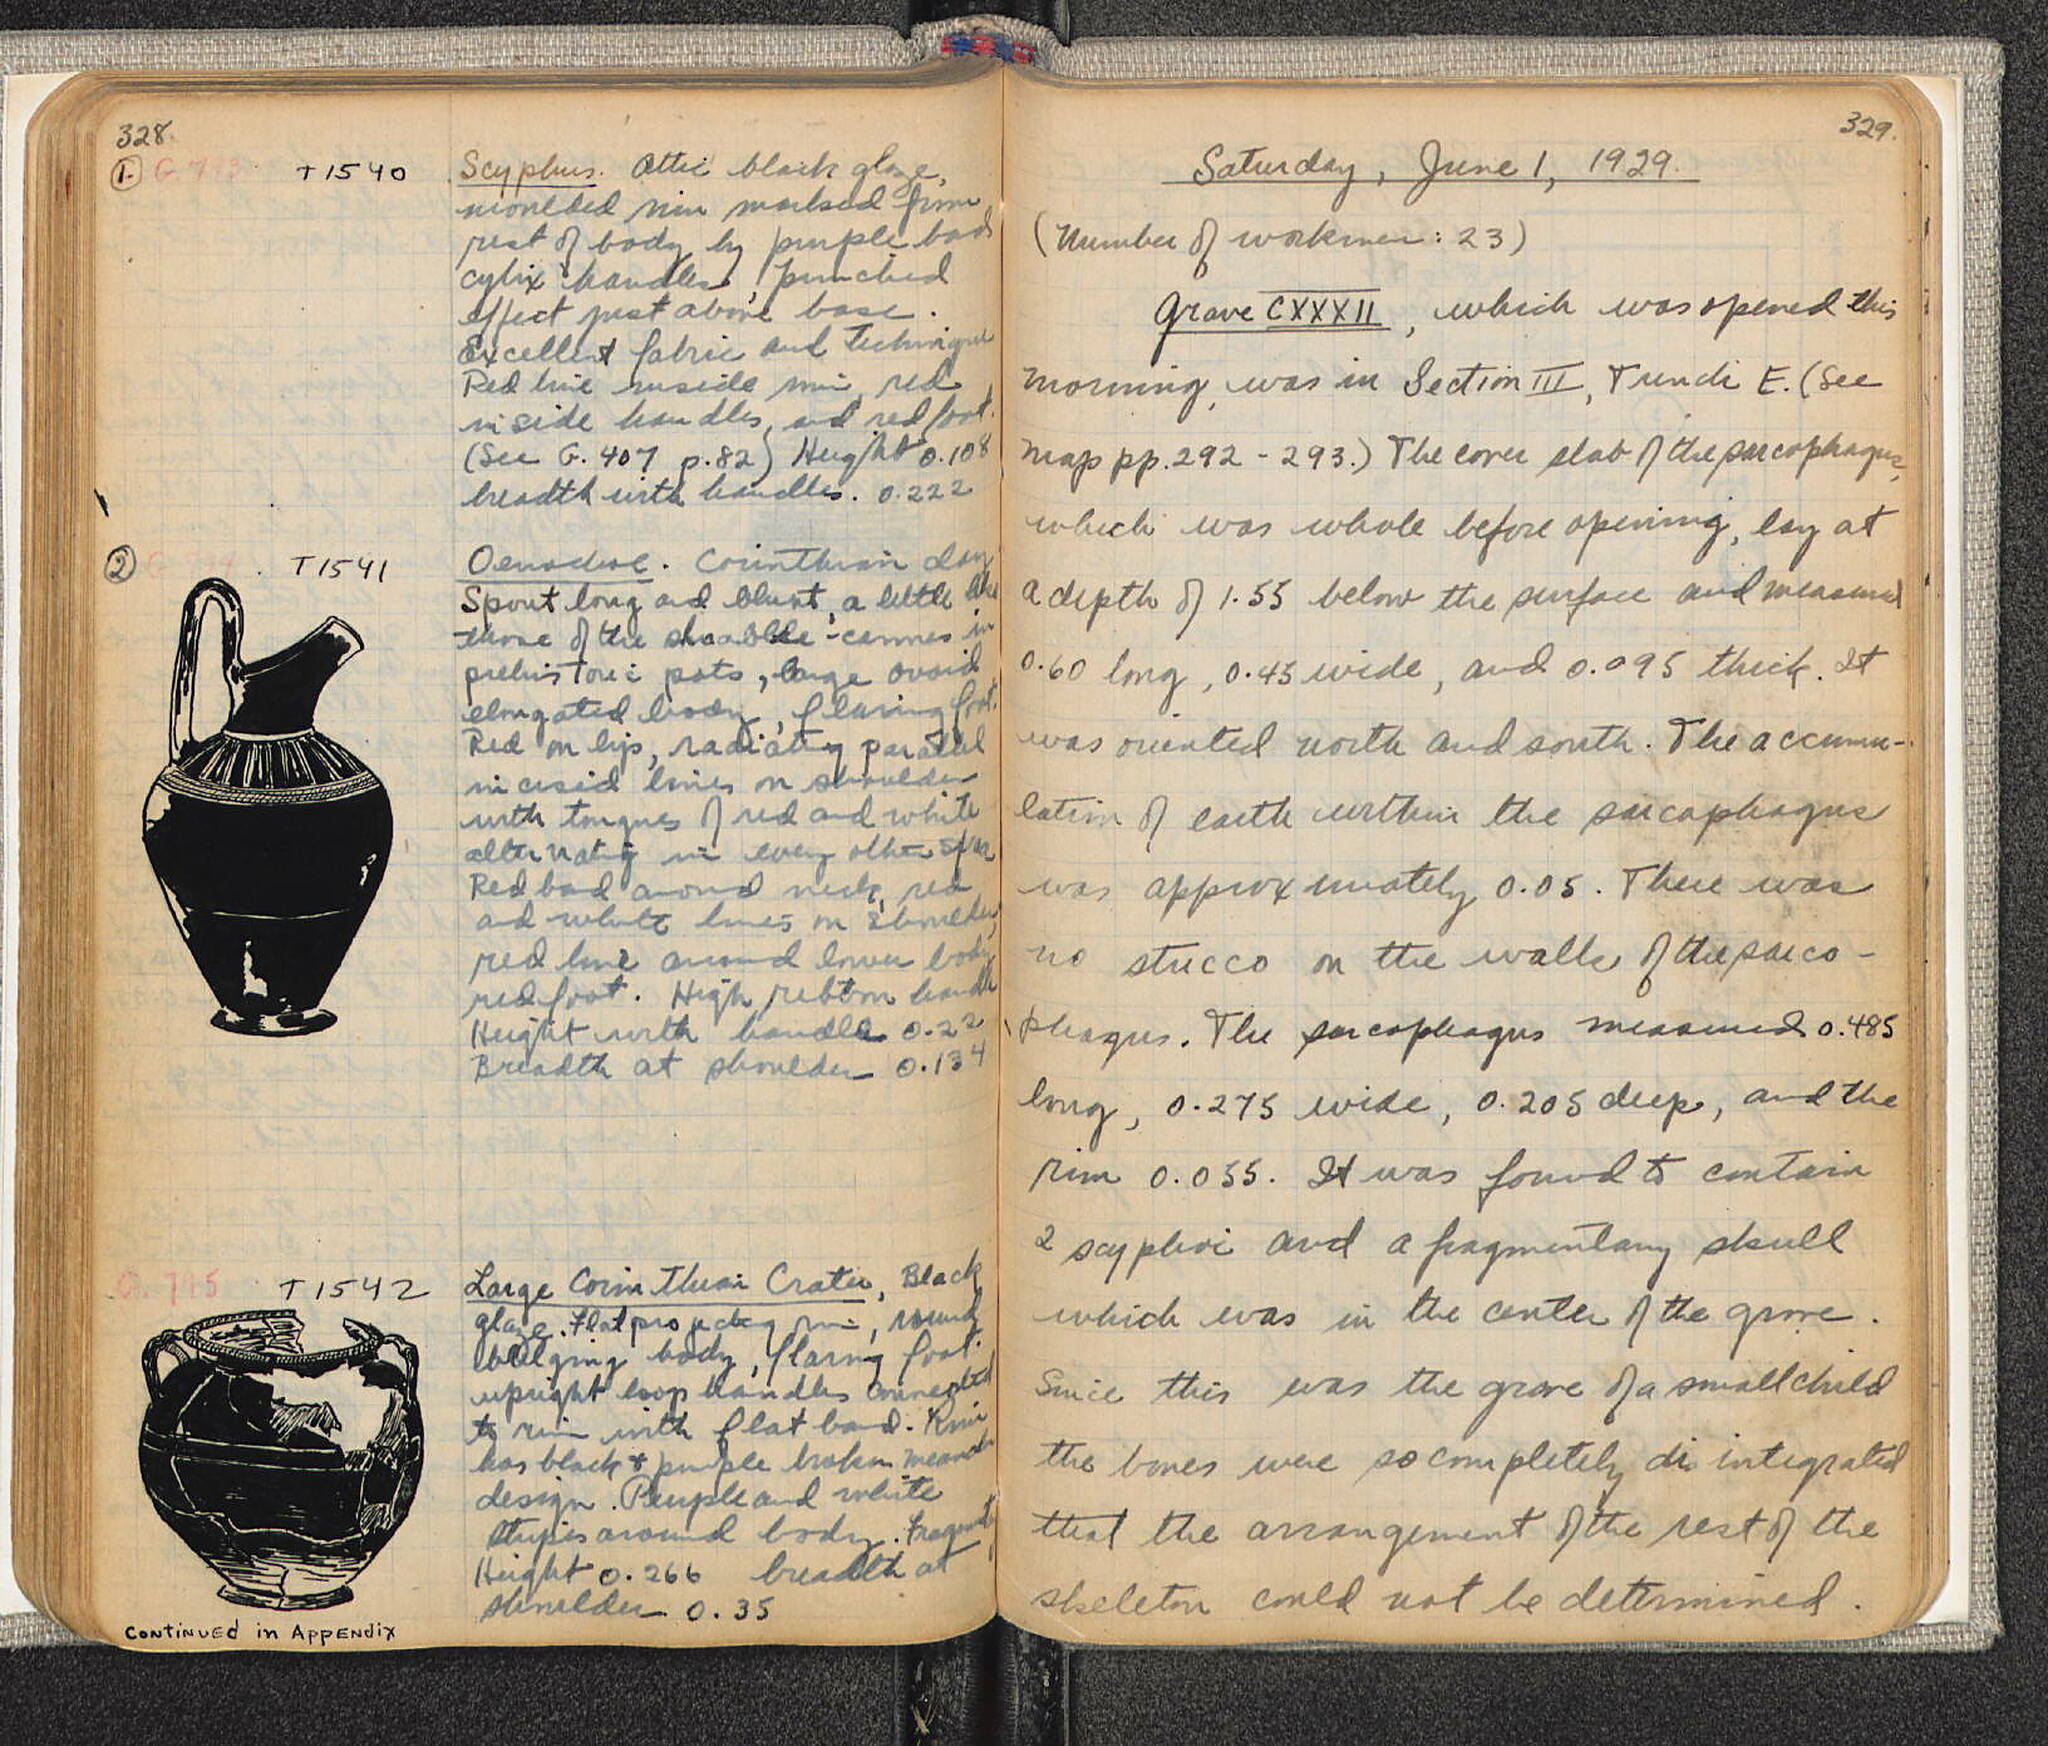 328.
1. G. 793 T1540
Scyphus. Attic black glaze,
moulded rim marked from
rest of body by purple band
cylix handles, pinched
effect just above base.
Excellent fabric and technique
Red line inside rim, red
inside handles, and red foot.
(See G. 407 p.82) Height 0.108
breadth with handles. 0.222
2 G. 794 T1541
Oenochoe. Corinthian clay
Spout long and blunt, a little like
those of the shnabble-cannes in
prehistoric pots, large ovoid
elongated body, flaring foot.
Red on lip, radiating parallel
incised lines on shoulder
with tongues of red and white
alternating in every other space
Red band around neck, red
and white lines on shoulder,
red line around lower body
red foot. High ribbon handle
Height with handle 0.22
Breadth at shoulder 0.134
G. 795 T1542
Large Corinthian Crater, Black
glaze. Flat projecting rim, round
bulging body, flaring foot.
upright loop handles connected
to rim with flat band. Rim
has black + purple broken meander
design. Purple and white
stripes around body.
Height 0.266 breadth at
shoulder 0.35
Continued in Appendix
329.
Saturday, June 1, 1929.
(Number of workmen: 23)
Grave CXXXII, which was opened this
morning, was in Section III, Trench E. (See
map pp. 292 - 293.) The cover slab of the sarcophagus,
which was whole before opening, lay at
a depth of 1.55 below the surface and measured
0.60 long, 0.45 wide, and 0.095 thick. It
was oriented north and south. The accumu-
lation of earth within the sarcophagus
was approximately 0.05. There was
no stucco on the walls of the sarco-
phagus. The sarcophagus measured 0.485
long, 0.275 wide, 0.205 deep, and the
rim 0.055. It was found to contain
2 scyphoi and a fragmentary skull
which was in the center of the grave.
Since this was the grave of a small child
the bones were so completely disintegrated
that the arrangement of the rest of the
skeleton could not be determined.